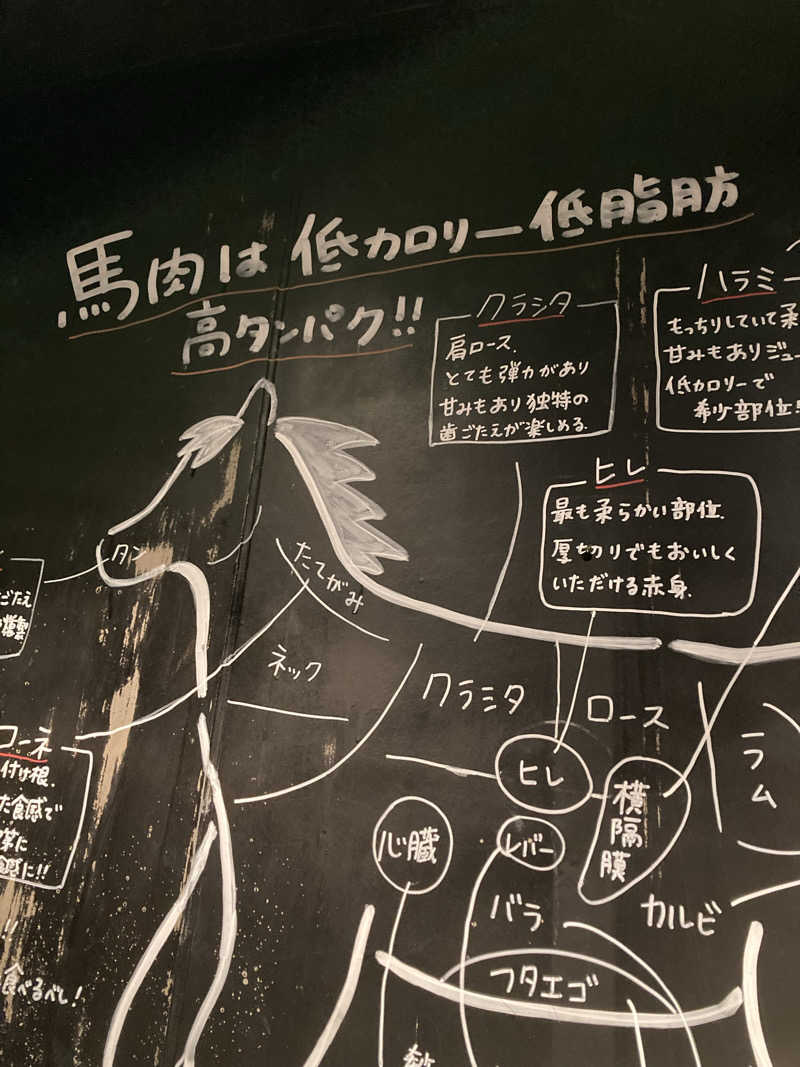 馬肉は低カロリー低脂肪
高タンパク!!
クラシタ
肩ロース.
とても弾力があり
甘みもあり独特の
歯ごたえが楽しめる.
ハラミ
もっちりしていて柔
甘みもありジュー
低カロリーで
希少部位!
ヒレ
最も柔らかい部位.
厚切りでもおいしく
いただける赤身.
タン
ごたえ
燻製
たてがみ
ネック
クラミタ
ロース
ヒレ
横隔膜
ラム
心臓
レバー
バラ
カルビ
フタエゴ
コーネ
付け根.
た食感で
感に!!
!!
食べるべし!